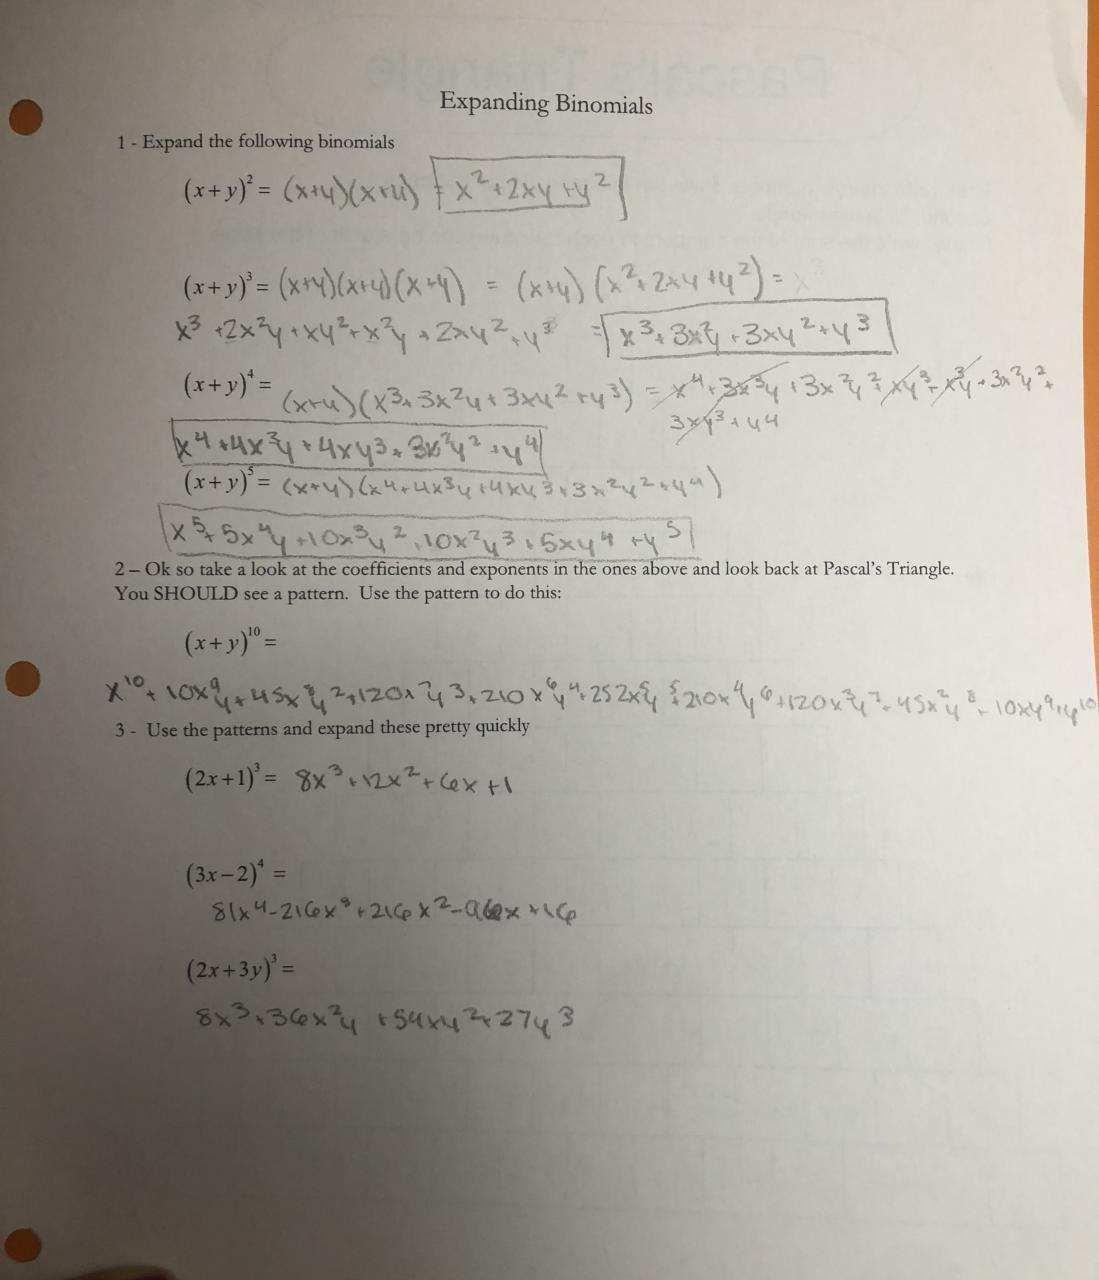 Expanding Binomials
1 - Expand the following binomials
(x+y)² = (x+y)(x+y) = x²+2xy+y²
(x+y)³ = (x+y)(x+y)(x+y) = (x+y)(x²+2xy+y²) =
x³+2x²y+xy²+x²y+2xy²+y³ = x³+3x²y+3xy²+y³
(x+y)⁴ = (x+y)(x³+3x²y+3xy²+y³) = x⁴+3x³y+3x²y²+xy³+x³y+3x²y²+
3xy³+y⁴
x⁴+4x³y+4xy³+3x²y²+y⁴
(x+y)⁵ = (x+y)(x⁴+4x³y+4xy³+3x²y²+y⁴)
x⁵+5x⁴y+10x³y²+10x²y³+5xy⁴+y⁵
2 – Ok so take a look at the coefficients and exponents in the ones above and look back at Pascal's Triangle.
You SHOULD see a pattern. Use the pattern to do this:
(x+y)¹⁰ =
x¹⁰+10x⁹y+45x⁸y²+120x⁷y³+210x⁶y⁴+252x⁵y⁵+210x⁴y⁶+120x³y⁷+45x²y⁸+10xy⁹+y¹⁰
3 - Use the patterns and expand these pretty quickly
(2x+1)³ = 8x³+12x²+6x+1
(3x−2)⁴ =
81x⁴-216x³+216x²-96x+16
(2x+3y)³ =
8x³+36x²y+54xy²+27y³